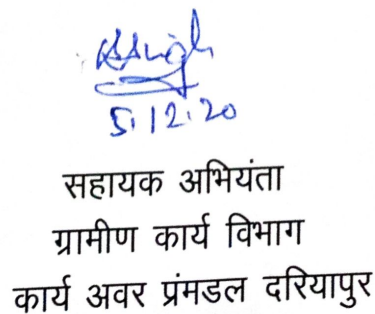 5.12.20
सहायक अभियंता
ग्रामीण कार्य विभाग
कार्य अवर प्रंमडल दरियापुर